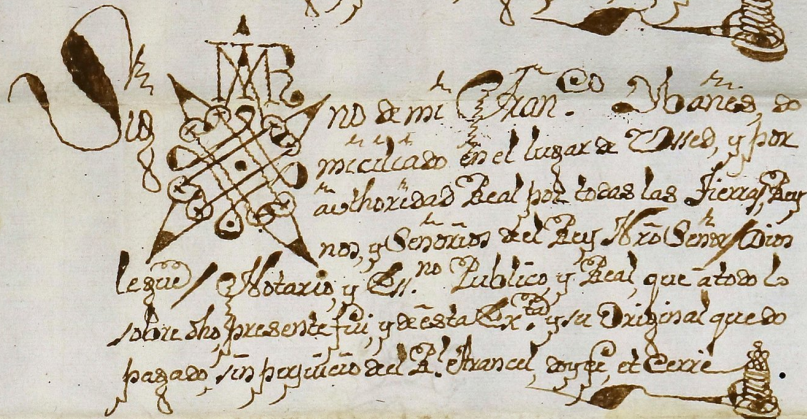 Sig no de mi Fran.co Ybañes, do
miciliado en el lugar de Osseo, y por
authoridad Real por todas las Tierras, Rey
nos, y Señorios del Rey Nro Señor / Dios
le gue / Notario, y Ess.no Publico, y Real, que a todo lo
sobre dho, presente fui, y de esta Ex.ta y su Original quedo
pagado, sin perjuicio del R.l Arancel, doy fe, et Cerre